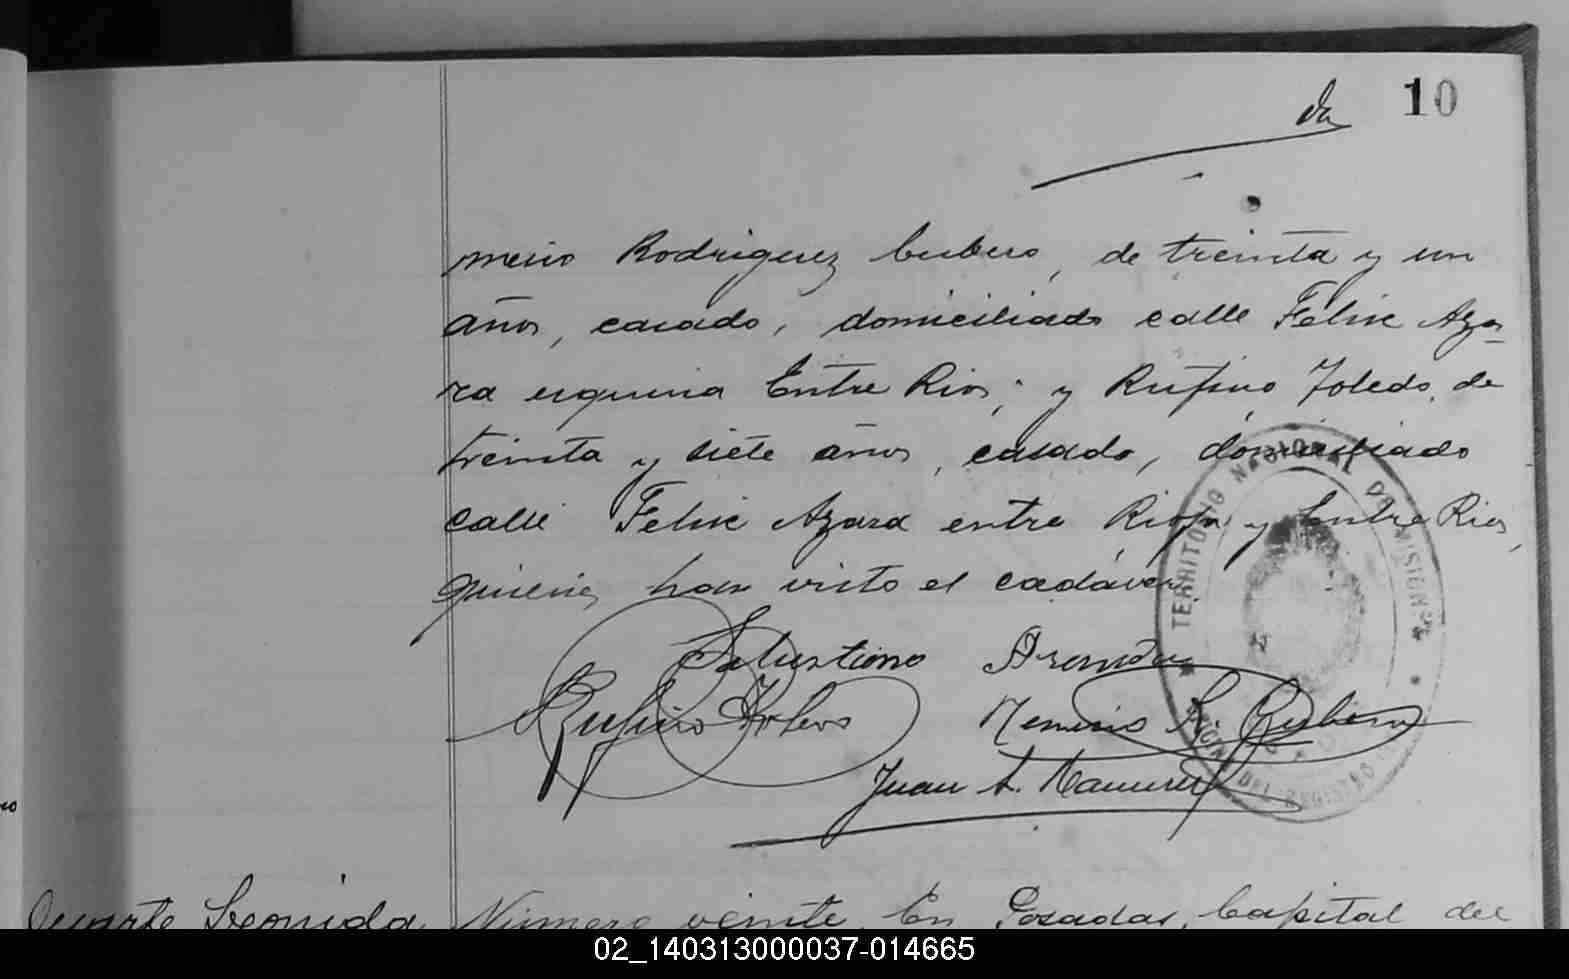 10
mecio Rodriguez Cubero, de treinta y un
años, casado, domiciliado calle Felix Aza-
ra esquina Entre Rios; y Rufino Toledo, de
treinta y siete años, casado, domiciliado
calle Felix Azara entre Rioja y Entre Rios,
quienes han visto el cadáver.
Salustiano Aranda
Rufino Toledo Nemecio R. Cubero
Juan A. Ramirez
TERRITORIO NACIONAL DE MISIONES
OFICINA DEL REGISTRO
Duarte Leonida Número veinte. En Posadas, Capital del
02_140313000037-014665